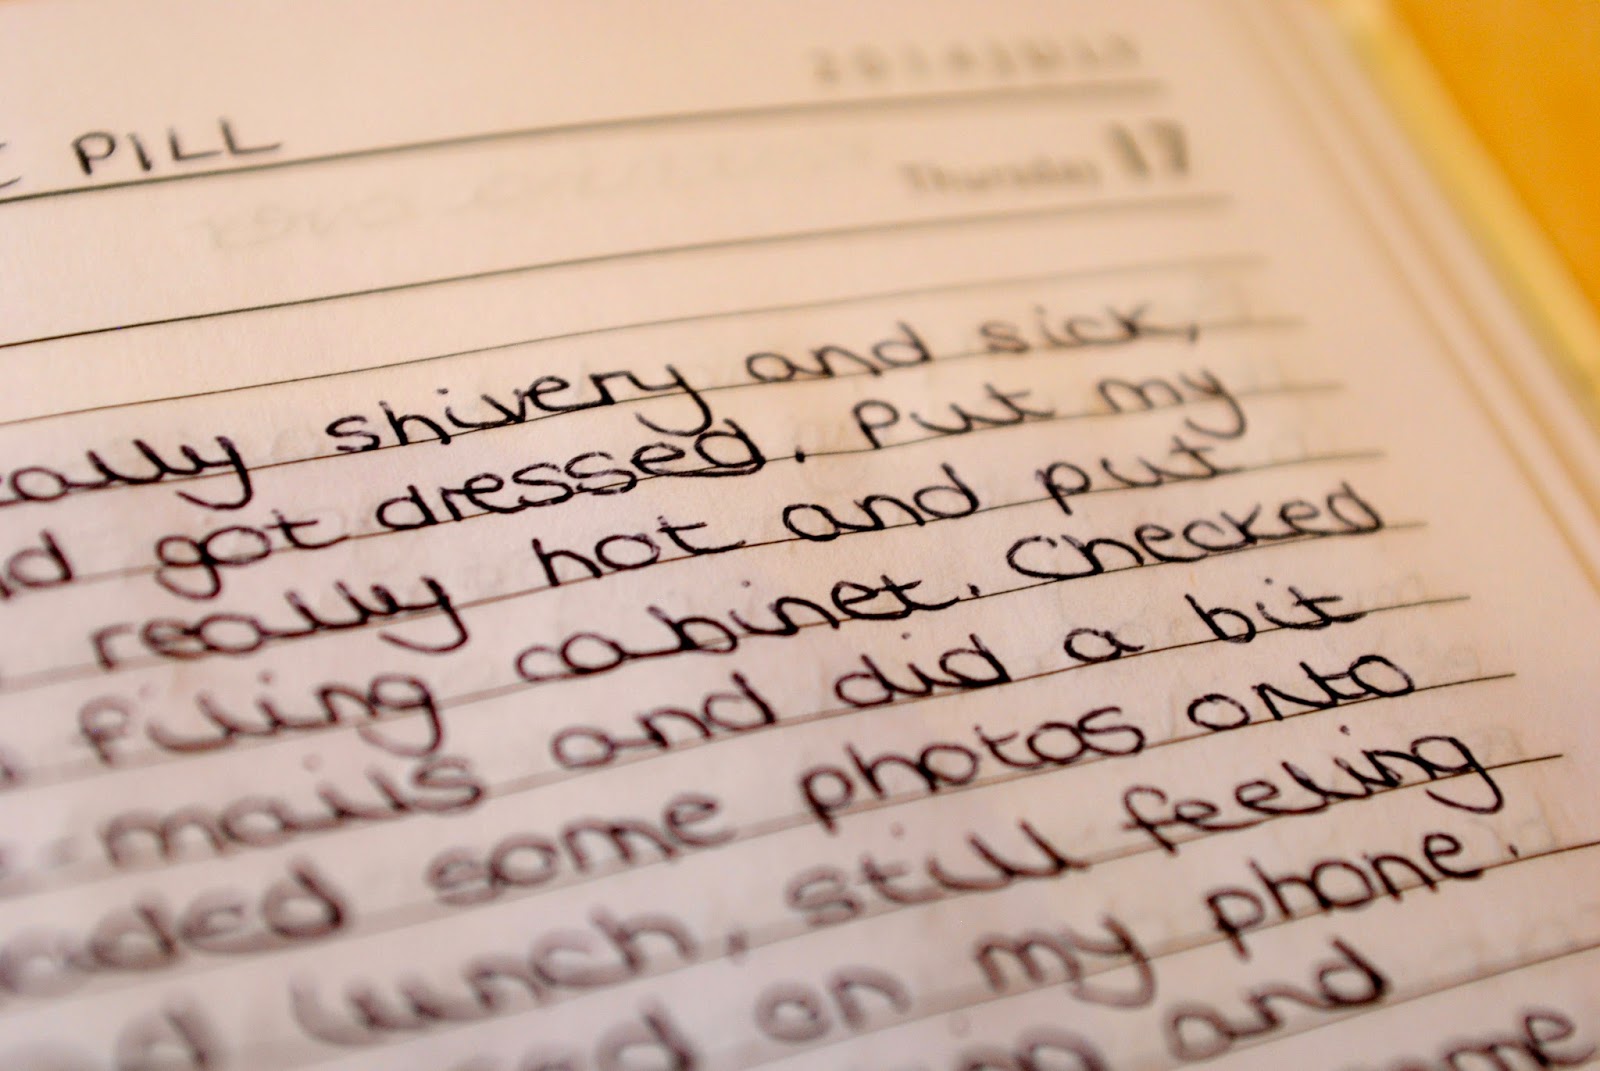 PILL
Thursday 17
shivery and sick,
got dressed. Put my
really hot and put
filing cabinet. Checked
mails and did a bit
some photos onto
lunch, still feeling
on my phone.
and